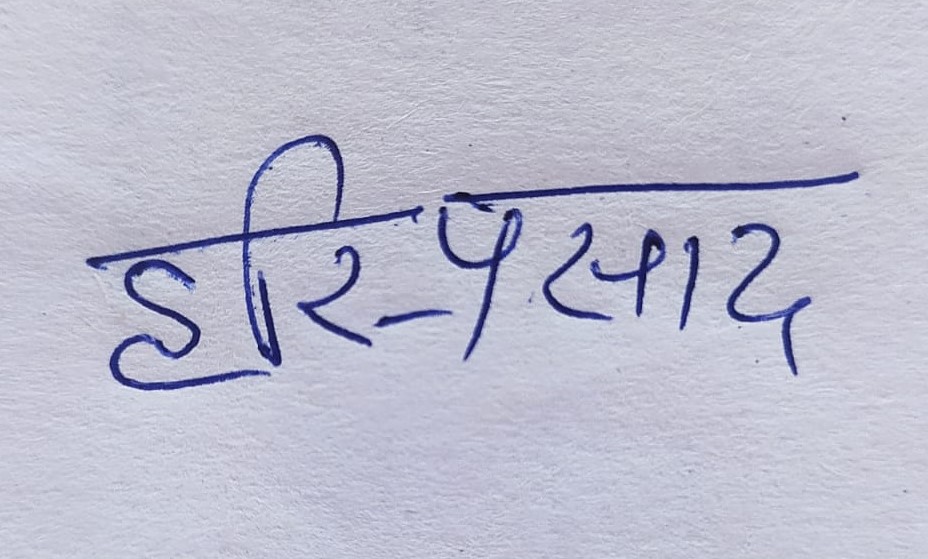 हरिप्रसाद